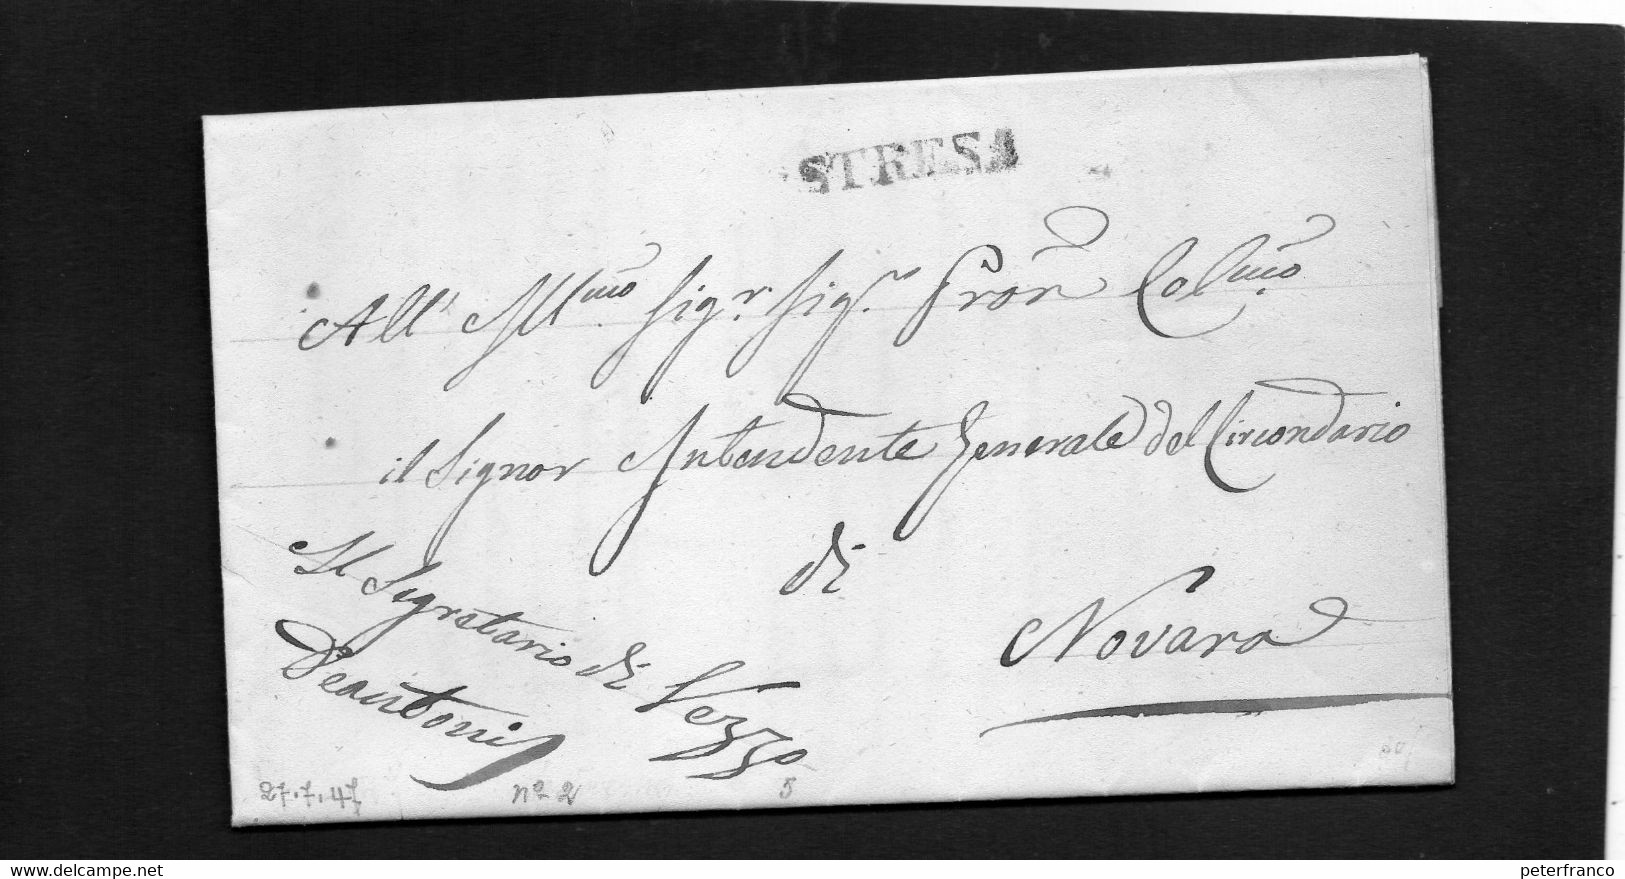 STRESA
All' Ill.mo Sig.r Sig.r Pron Col.mo
il Signor Intendente Generale del Circondario
di
Novara
Il Segretario di Vezzo
Deantonis
27.7.47 no 2 5
peterfranco